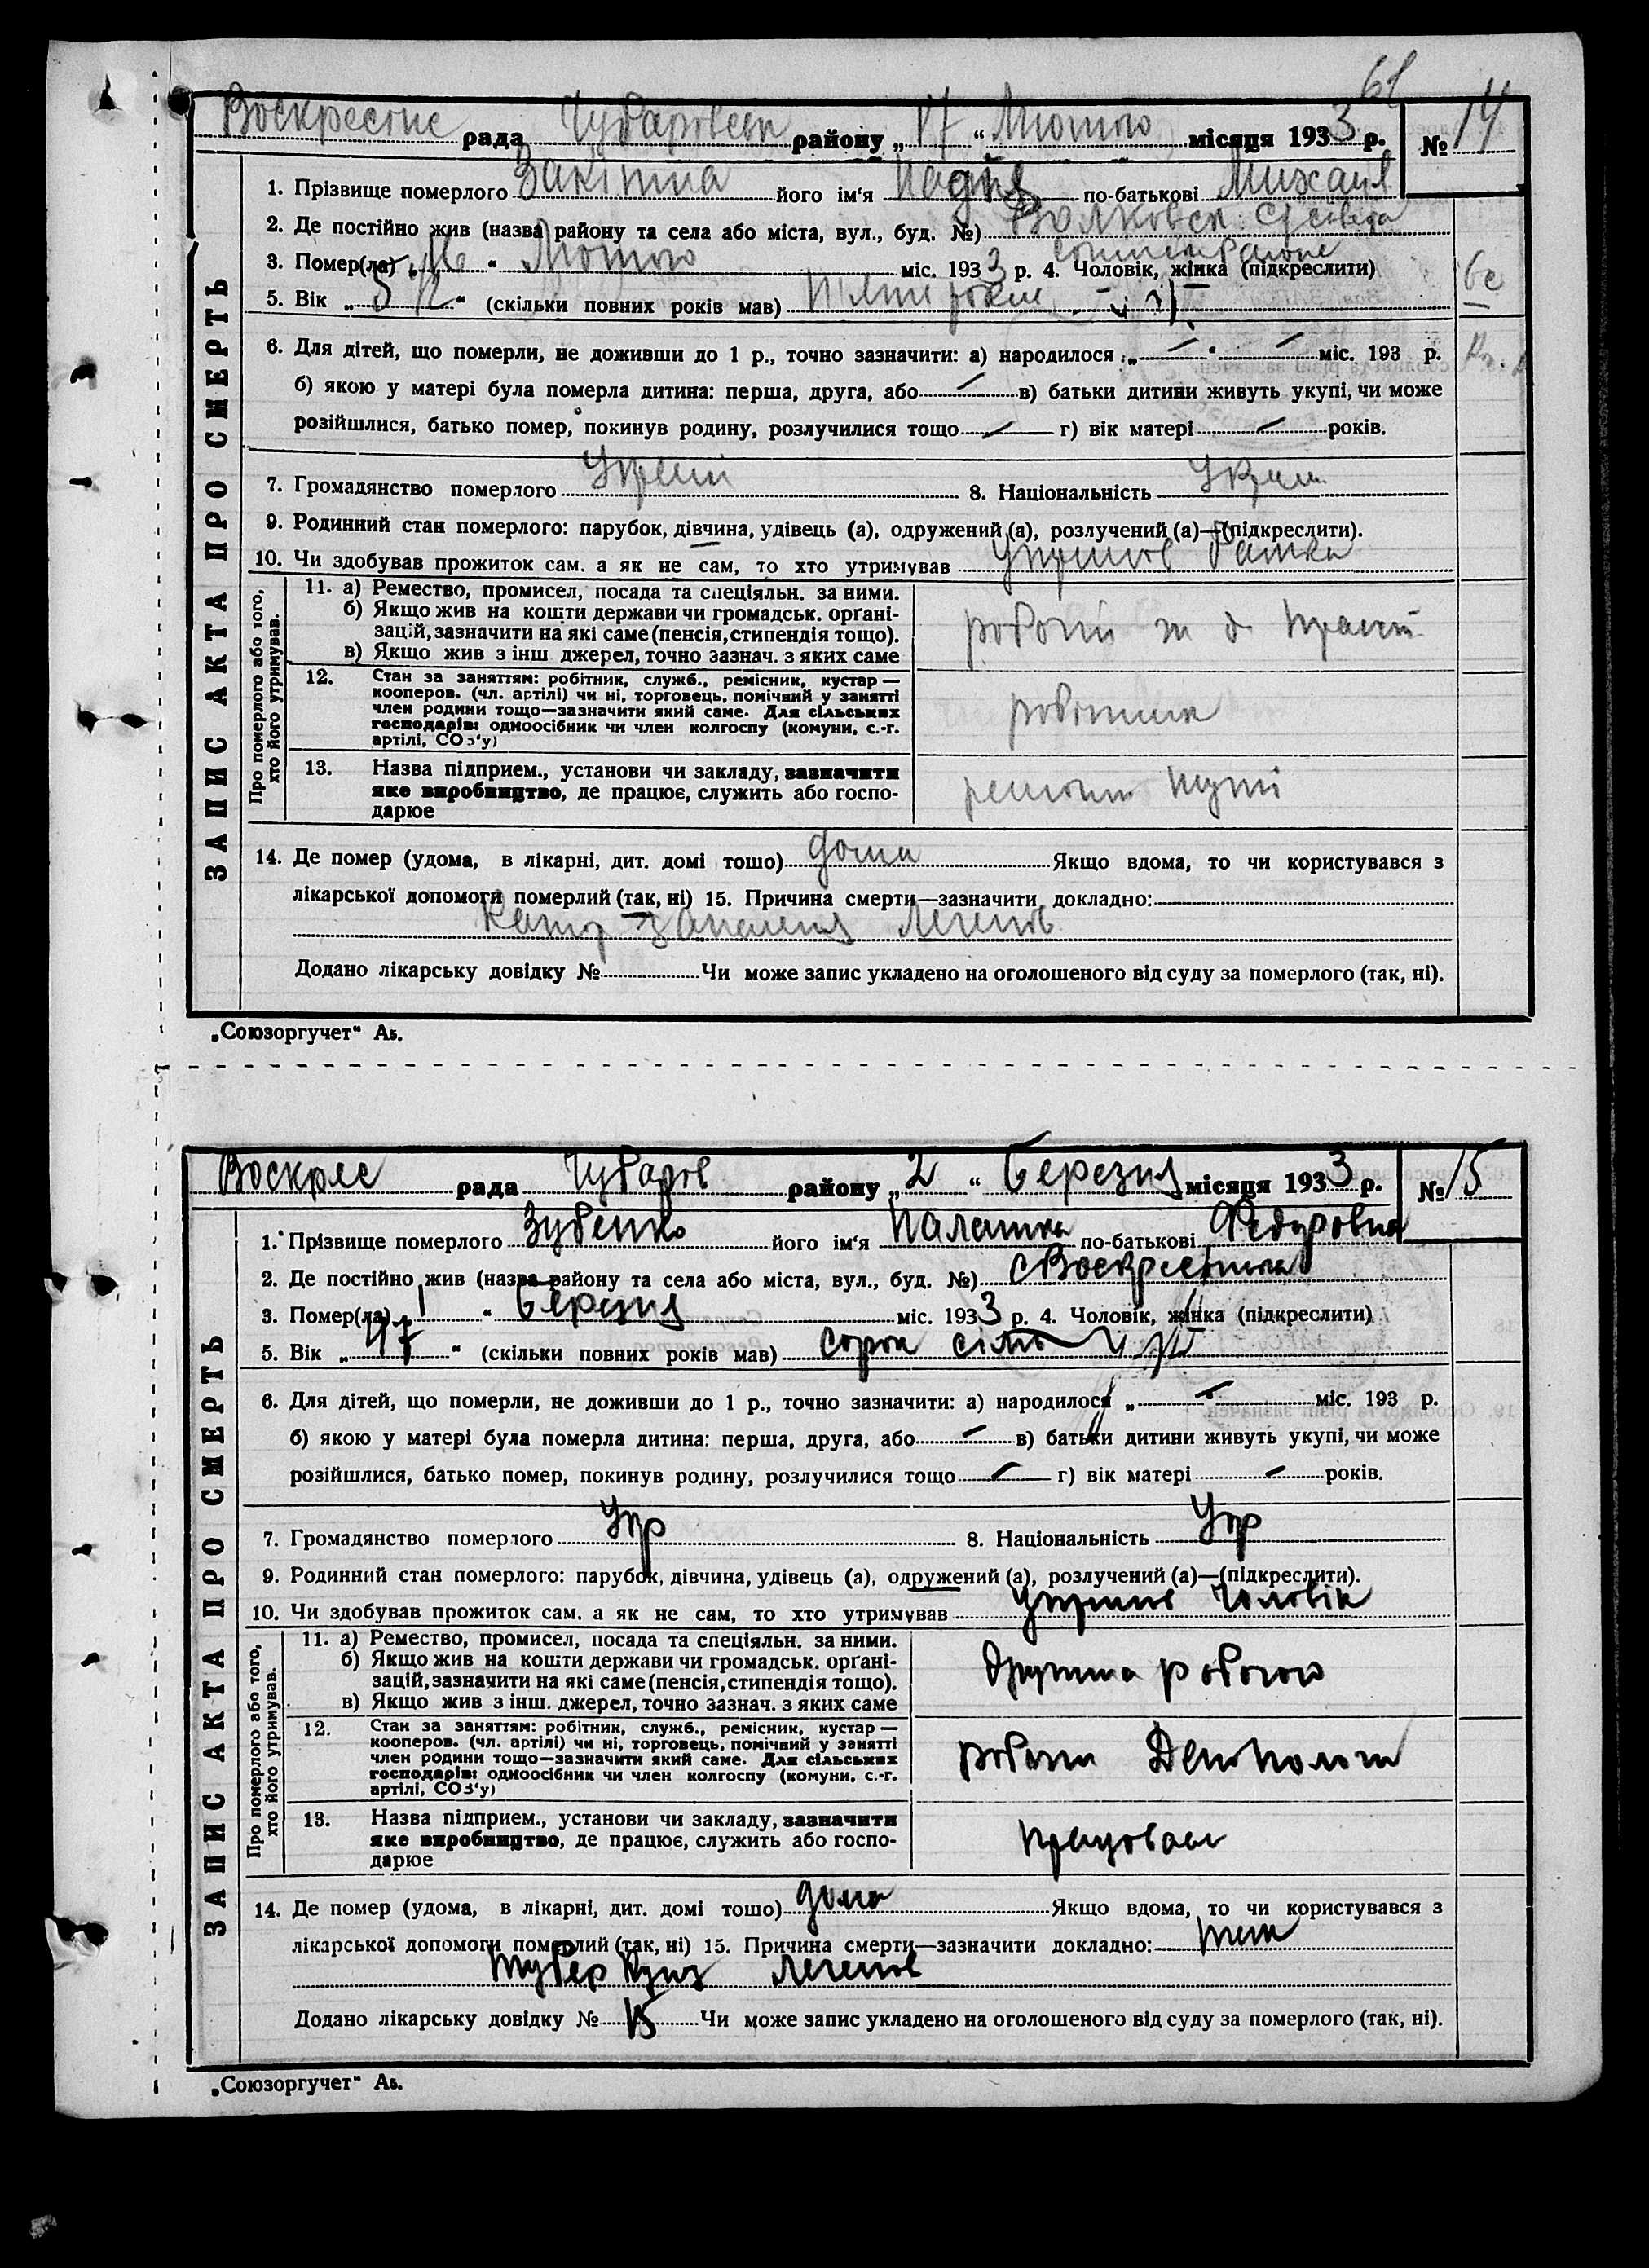 61
Воскресенс рада Чубаровськ району „17“ Лютого місяця 1933 р. № 14
ЗАПИС АКТА ПРО СМЕРТЬ
1. Прізвище померлого Закітна його ім‘я Надія по-батькові Михайл
2. Де постійно жив (назва району та села або міста, вул., буд. №)
3. Помер(ла) „16“ Лютого міс. 1933 р. 4. Чоловік, жінка (підкреслити)
5. Вік „5 р“ (скільки повних років мав) п'ять років
6. Для дітей, що померли, не доживши до 1 р., точно зазначити: а) народилося „—“ — міс. 193 р.
б) якою у матері була померла дитина: перша, друга, або — в) батьки дитини живуть укупі, чи може
розійшлися, батько помер, покинув родину, розлучилися тощо — г) вік матері — років.
7. Громадянство померлого 8. Національність
9. Родинний стан померлого: парубок, дівчина, удівець (а), одружений (а), розлучений (а)—(підкреслити).
10. Чи здобував прожиток сам. а як не сам, то хто утримував батько
Про померлого або того, хто його утримував.
11. а) Ремество, промисел, посада та спеціяльн. за ними.
б) Якщо жив на кошти держави чи громадськ. орґані-
зацій, зазначити на які саме (пенсія, стипендія тощо).
в) Якщо жив з інш джерел, точно зазнач. з яких саме
12. Стан за заняттям: робітник, служб., ремісник, кустар—
кооперов. (чл. артілі) чи ні, торговець, помічний у занятті
член родини тощо—зазначити який саме. Для сільських
господарів: одноосібник чи член колгоспу (комуни, с.-г.
артілі, СОЗ‘у)
робітник
13. Назва підприєм., установи чи закладу, зазначити
яке виробництво, де працює, служить або госпо-
дарює
ремонт путі
14. Де помер (удома, в лікарні, дит. домі тощо) дома Якщо вдома, то чи користувався з
лікарської допомоги померлий (так, ні) 15. Причина смерти—зазначити докладно:
запалення легенів
Додано лікарську довідку № Чи може запис укладено на оголошеного від суду за померлого (так, ні).
„Союзоргучет“ Аб.
Воскрес рада Чубаров району „2“ Березня місяця 1933 р. № 15
ЗАПИС АКТА ПРО СМЕРТЬ
1. Прізвище померлого Зубенко його ім‘я Палашка по-батькові Федоровна
2. Де постійно жив (назва району та села або міста, вул., буд. №) с Воскресенка
3. Помер(ла) 1 “ березня міс. 1933 р. 4. Чоловік, жінка (підкреслити)
5. Вік „47“ (скільки повних років мав) сорок сім
6. Для дітей, що померли, не доживши до 1 р., точно зазначити: а) народилося „—“ міс. 193 р.
б) якою у матері була померла дитина: перша, друга, або — в) батьки дитини живуть укупі, чи може
розійшлися, батько помер, покинув родину, розлучилися тощо — г) вік матері — років.
7. Громадянство померлого Укр 8. Національність Укр
9. Родинний стан померлого: парубок, дівчина, удівець (а), одружений (а), розлучений (а)—(підкреслити).
10. Чи здобував прожиток сам. а як не сам, то хто утримував чоловік
Про померлого або того, хто його утримував.
11. а) Ремество, промисел, посада та спеціяльн. за ними.
б) Якщо жив на кошти держави чи громадськ. орґані-
зацій, зазначити на які саме (пенсія, стипендія тощо).
в) Якщо жив з інш. джерел, точно зазнач. з яких саме
12. Стан за заняттям: робітник, служб., ремісник, кустар—
кооперов. (чл. артілі) чи ні, торговець, помічний у занятті
член родини тощо—зазначити який саме. Для сільських
господарів: одноосібник чи член колгоспу (комуни, с.-г.
артілі, СОЗ‘у)
13. Назва підприєм., установи чи закладу, зазначити
яке виробництво, де працює, служить або госпо-
дарює
14. Де помер (удома, в лікарні, дит. домі тощо) дома Якщо вдома, то чи користувався з
лікарської допомоги померлий (так, ні) 15. Причина смерти—зазначити докладно:
легенів
Додано лікарську довідку № 15 Чи може запис укладено на оголошеного від суду за померлого (так, ні).
„Союзоргучет“ Аб.